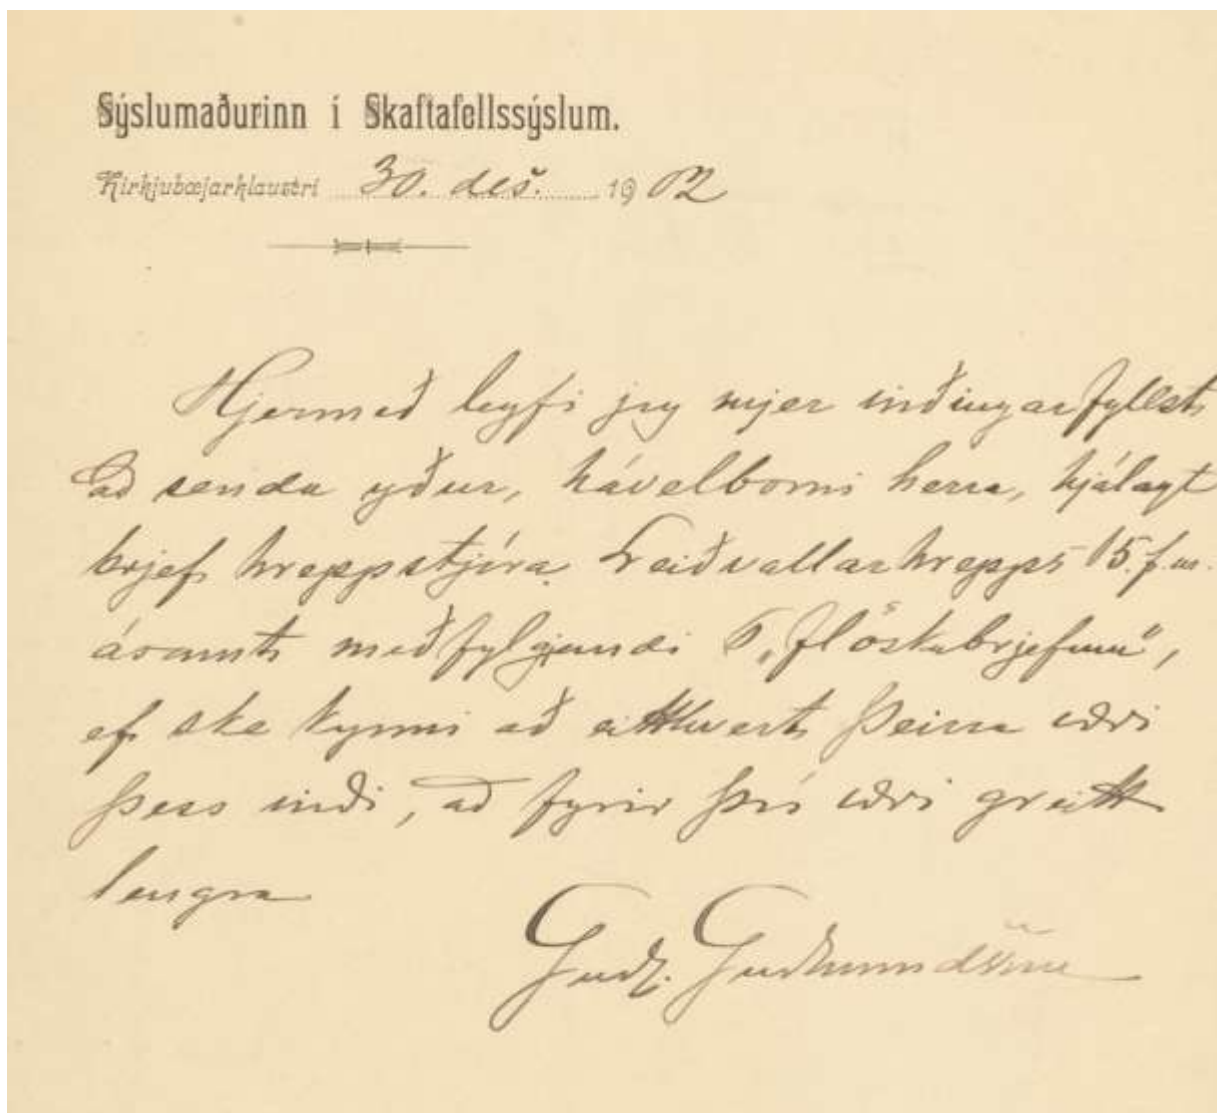 Sýslumaðurinn í Skaftafellssýslum.
Kirkjubæjarklaustri 30. des. 1902
Hjermeð leyfi jeg mjer virðingarfyllst
að senda yður, hávelborni herra, hjálagt
brjef hreppstjóra Leiðvallarhrepps 15. f. m.
ásamt meðfylgjandi 6 „flöskubrjefum“,
ef ske kynni að eitthvert þeirra væri
þess virði, að fyrir því væri greitt
lengra
Guðl. Guðmundsson